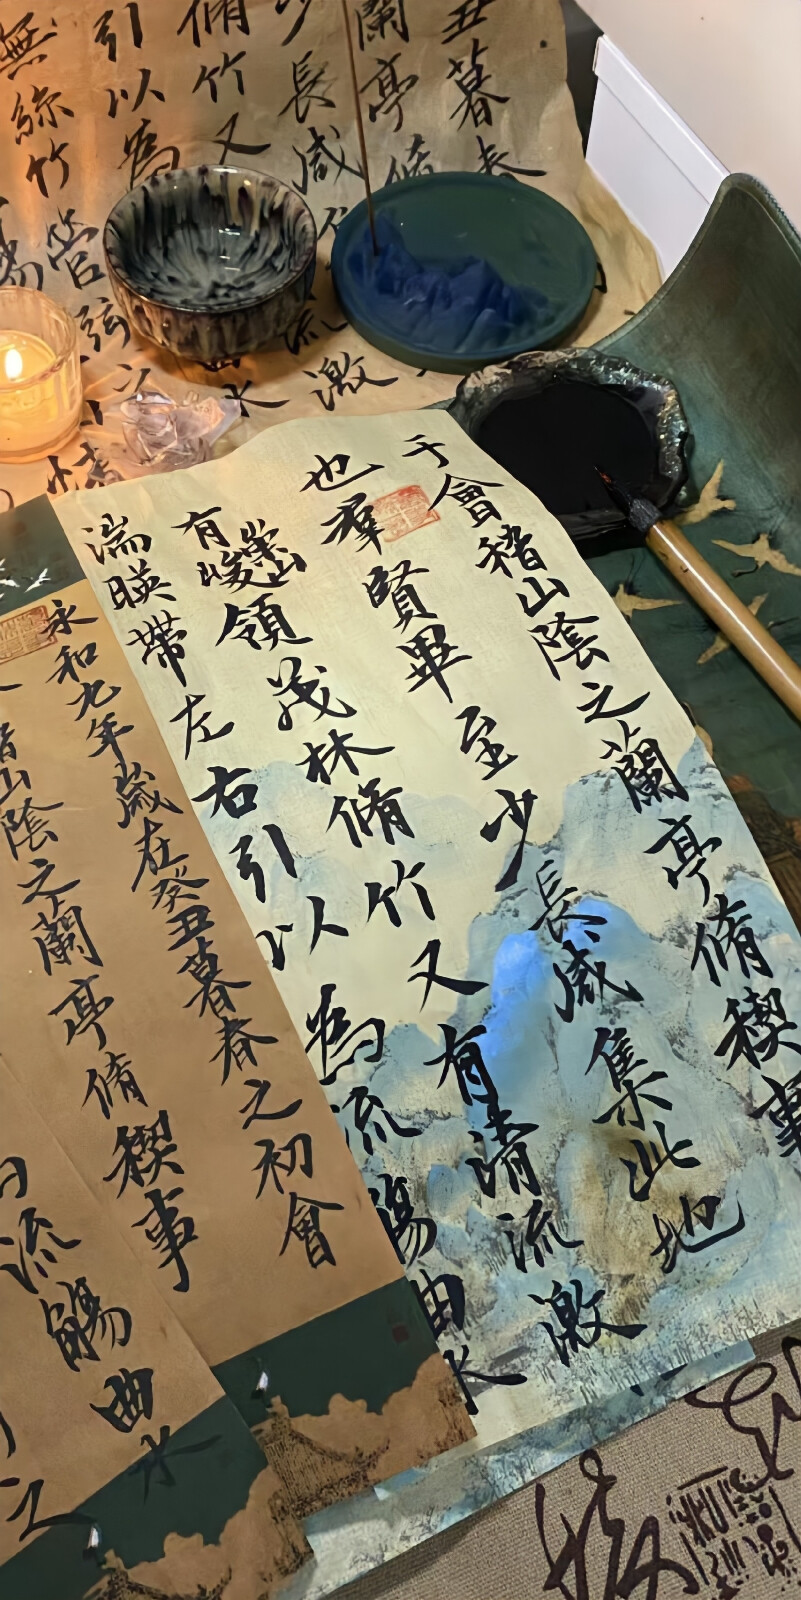 于會稽山陰之蘭亭脩稧事
也羣賢畢至少長咸集此地
有崇山峻領茂林脩竹又有清流激
湍暎帶左右引以為流觴曲水
永和九年歲在癸丑暮春之初會
稽山陰之蘭亭脩稧事
流觴曲水
丑暮春
蘭亭脩
少長咸
流激
脩竹又
水
引以為
無絲竹管弦之
觴
情